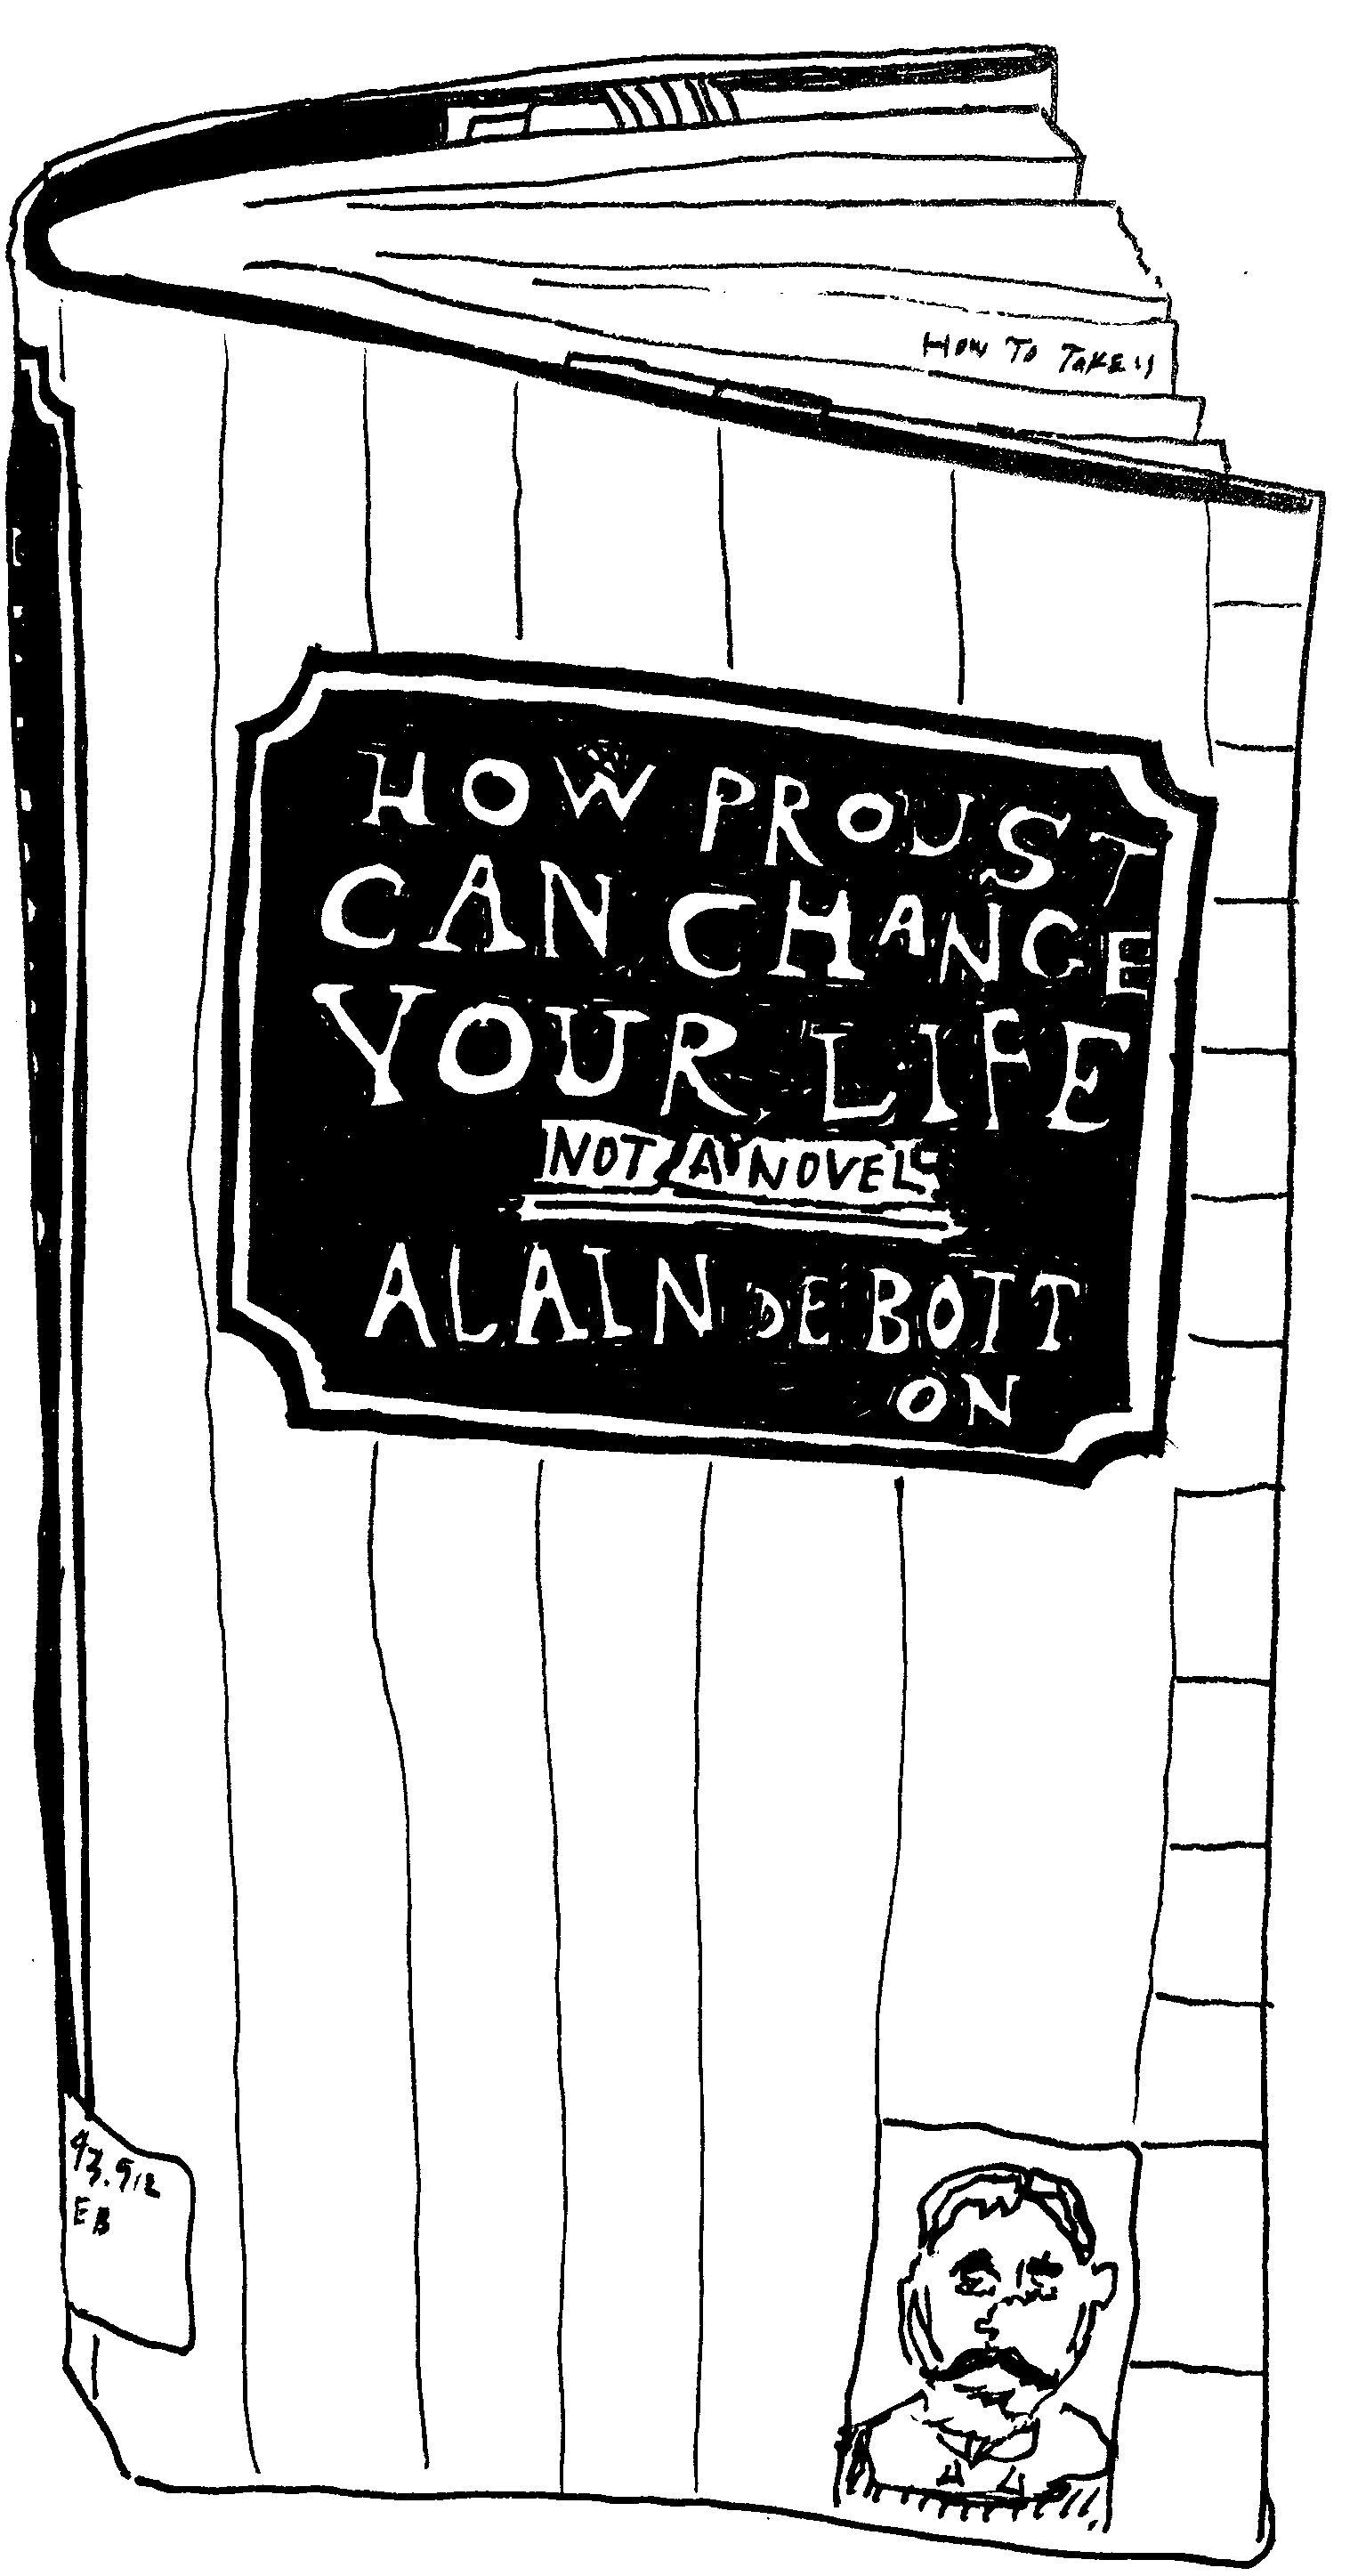 HOW TO TAKE
HOW PROUST
CAN CHANGE
YOUR LIFE
NOT A NOVEL
ALAIN DE BOTT
ON
43.912
EB